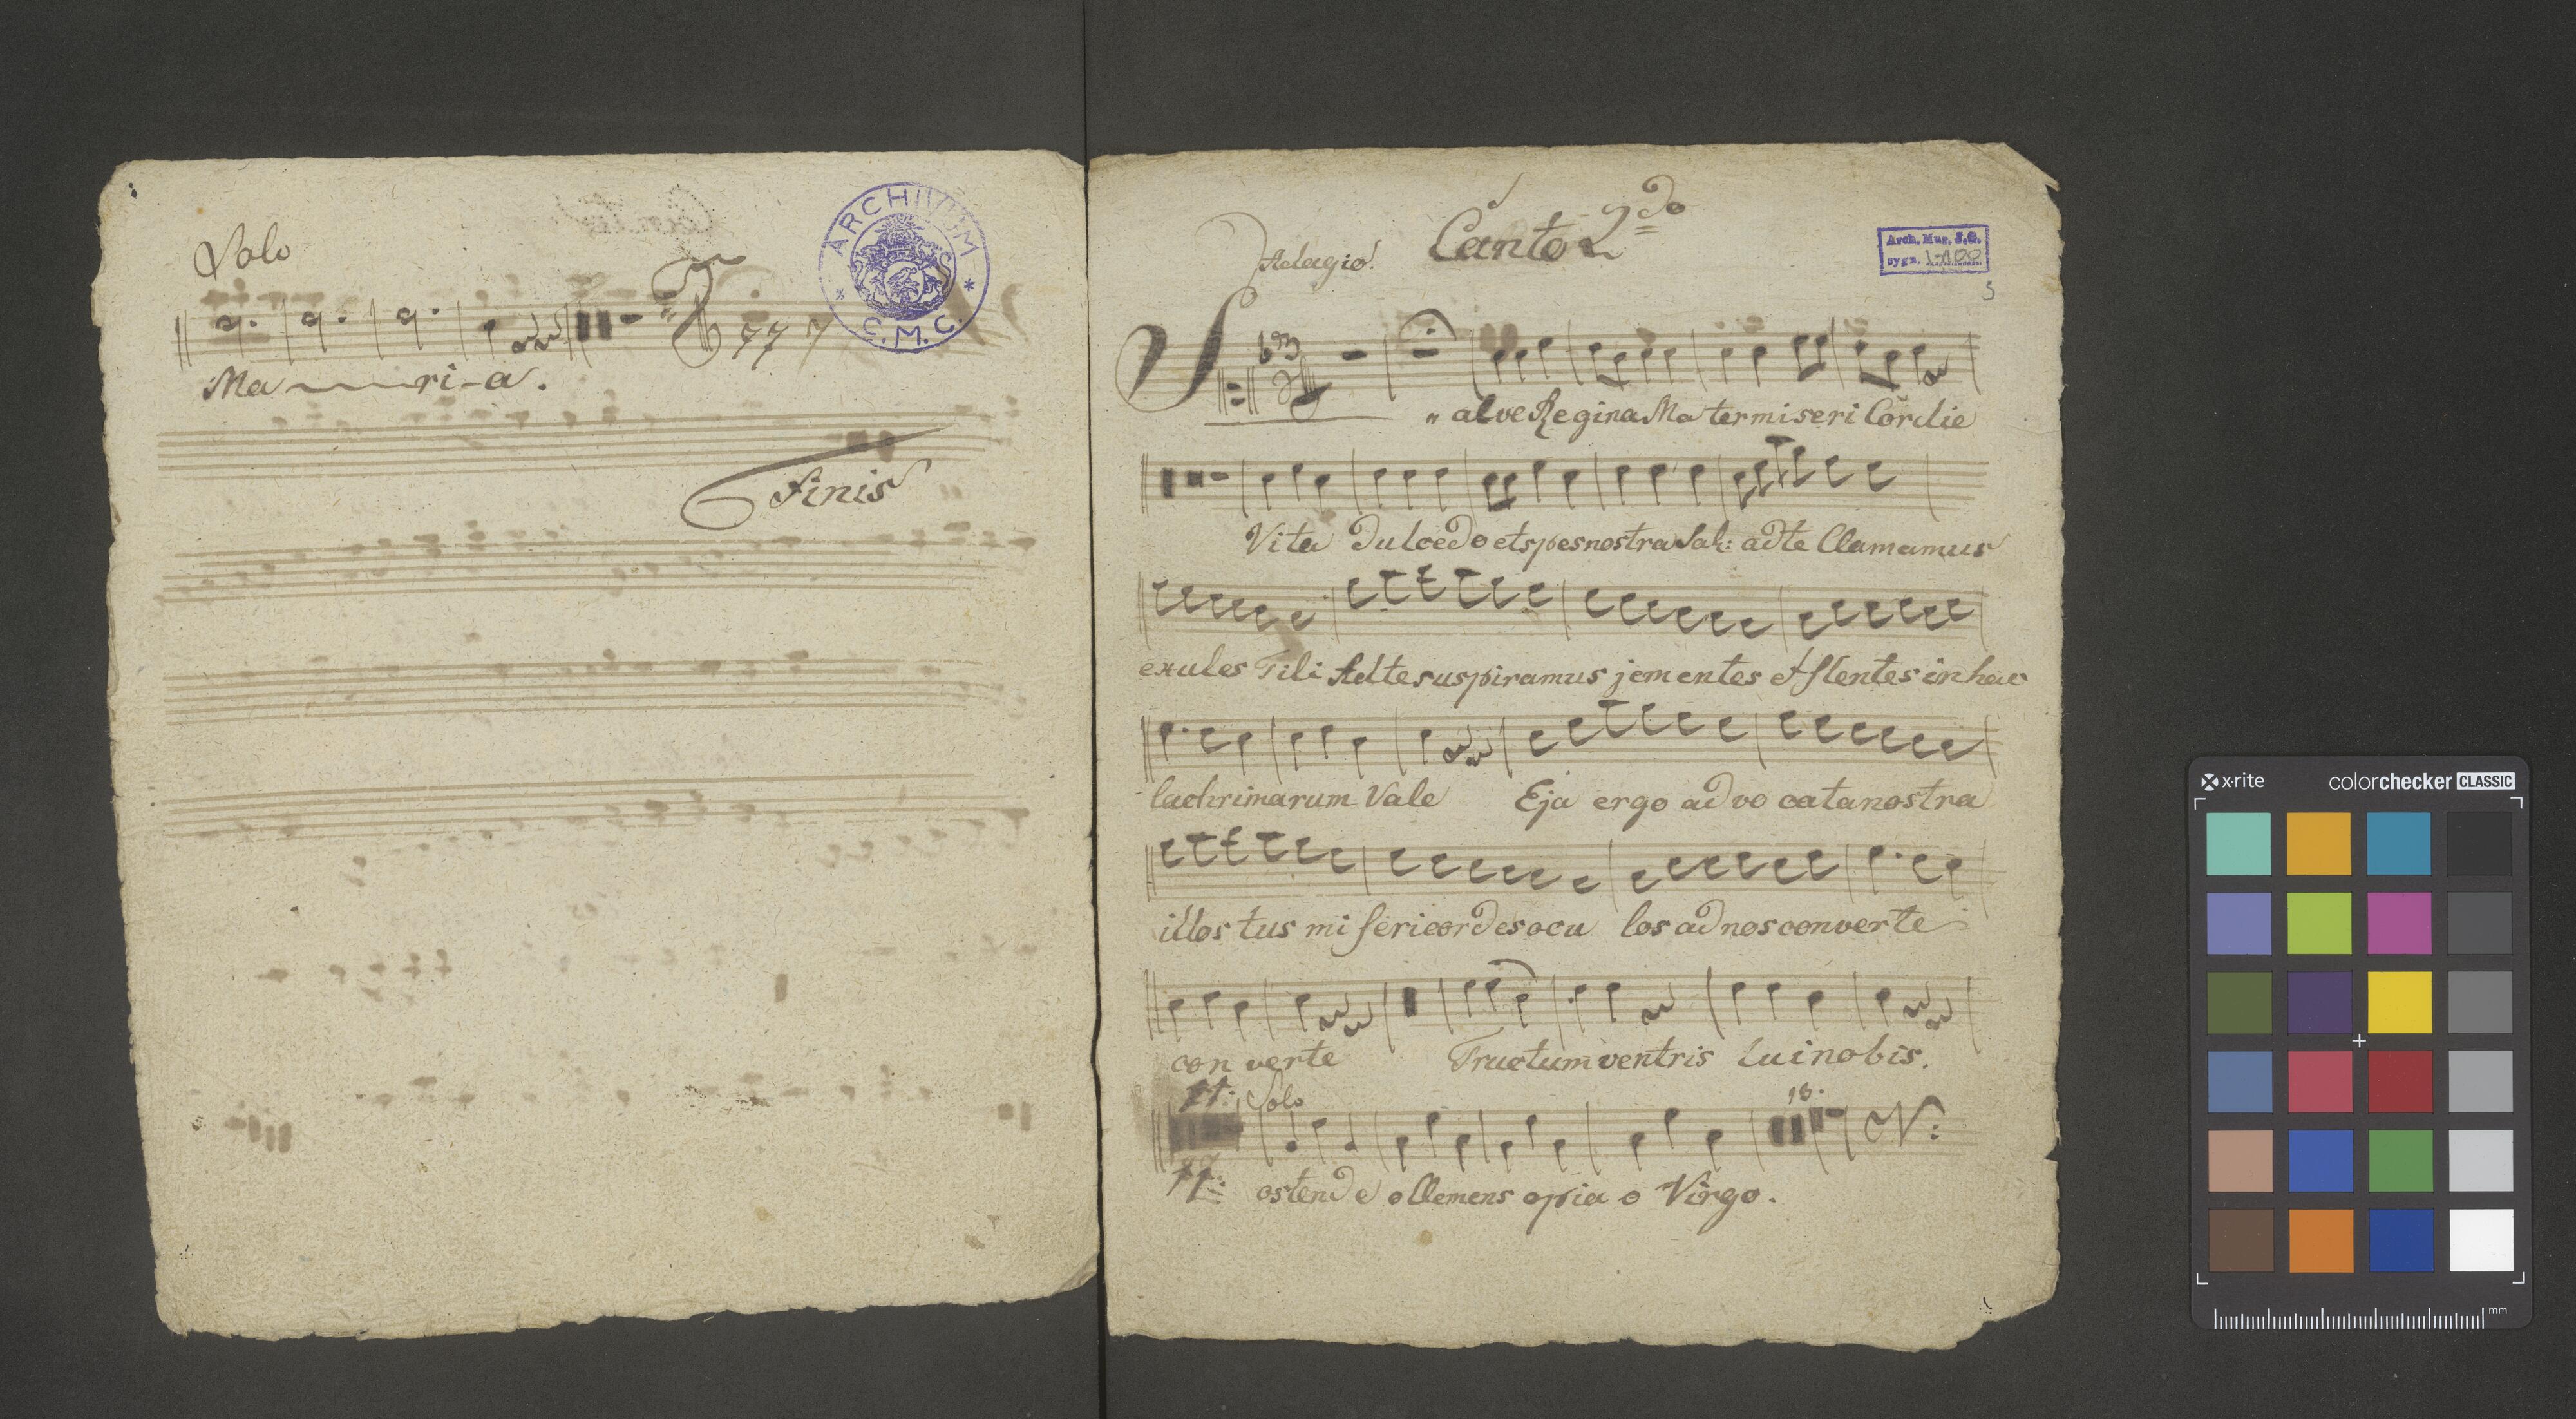 Solo
Ma ri-a.
Finis
ARCHIVUM
C. M. C.
Canto 2do
Adagio.
Arch. Mus. J.G.
sygn. I-100
5
Salve Regina Ma ter mi seri Cordie
Vita dulcedo et spes nostra Sal: ad te Clamamus
exules Fili Ad te suspiramus jementes et flentes in hac
lachrimarum Vale Eja ergo ad vo cata nostra
illos tus mi sericordes ocu los ad nos converte
con verte Fructum ventris tui nobis.
11: Solo 16.
ostende o Clemens o pia o Virgo.
x·rite colorchecker CLASSIC
mm